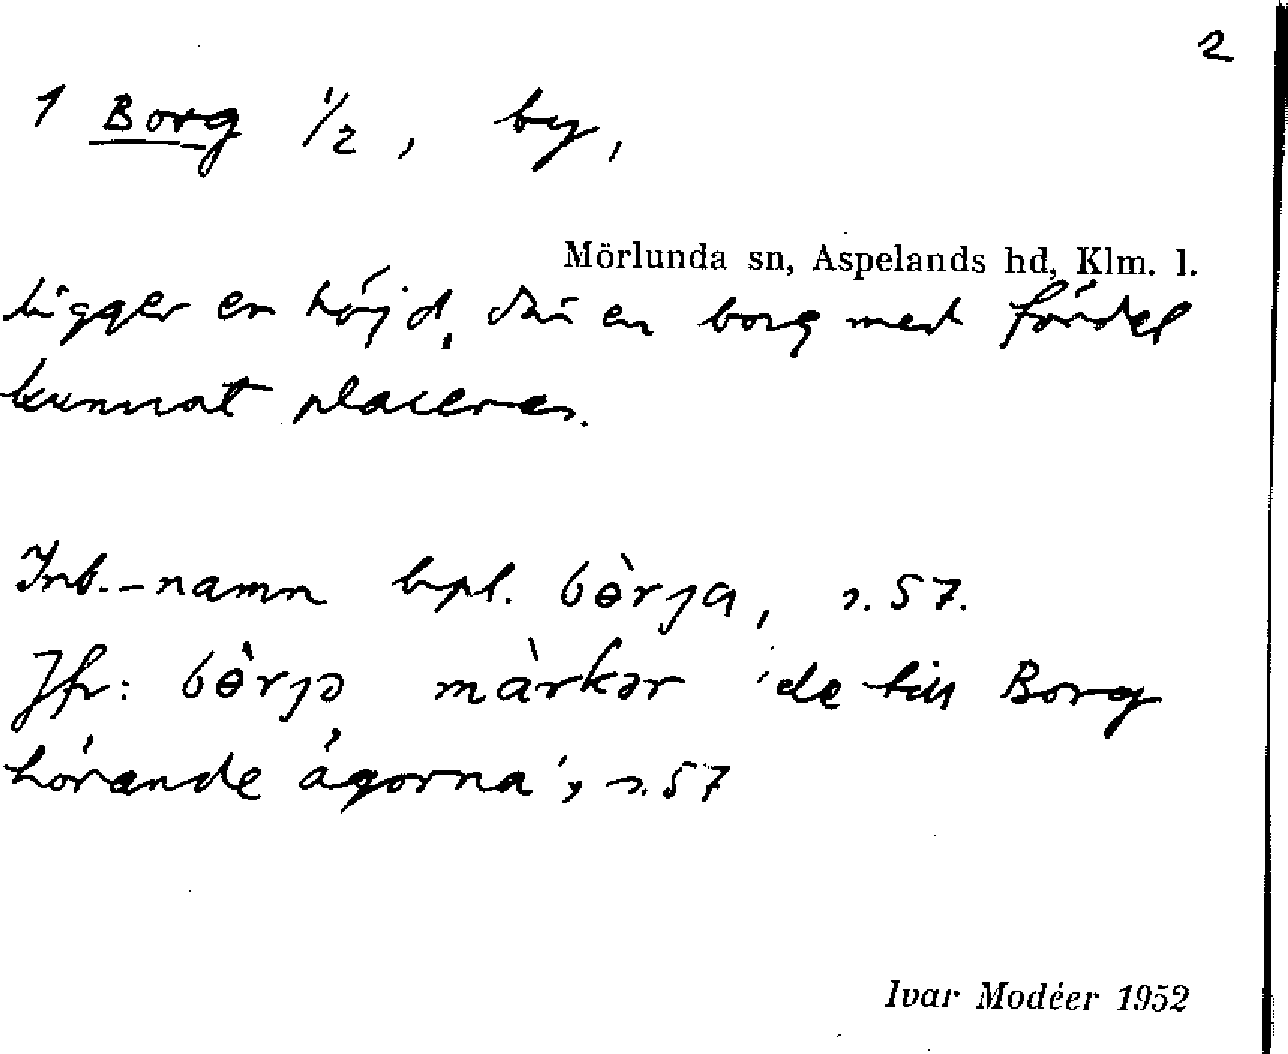 2
1 Borg 1/2, by,
Mörlunda sn, Aspelands hd, Klm. l.
ligger en höjd, där en borg med fördel
kunnat placeras.
Inb.-namn bpl. bɵ̀rja, s. 57.
Jfr: bɵ̀rjə màrkər 'de till Borg
hörande ägorna', s. 57
Ivar Modéer 1952